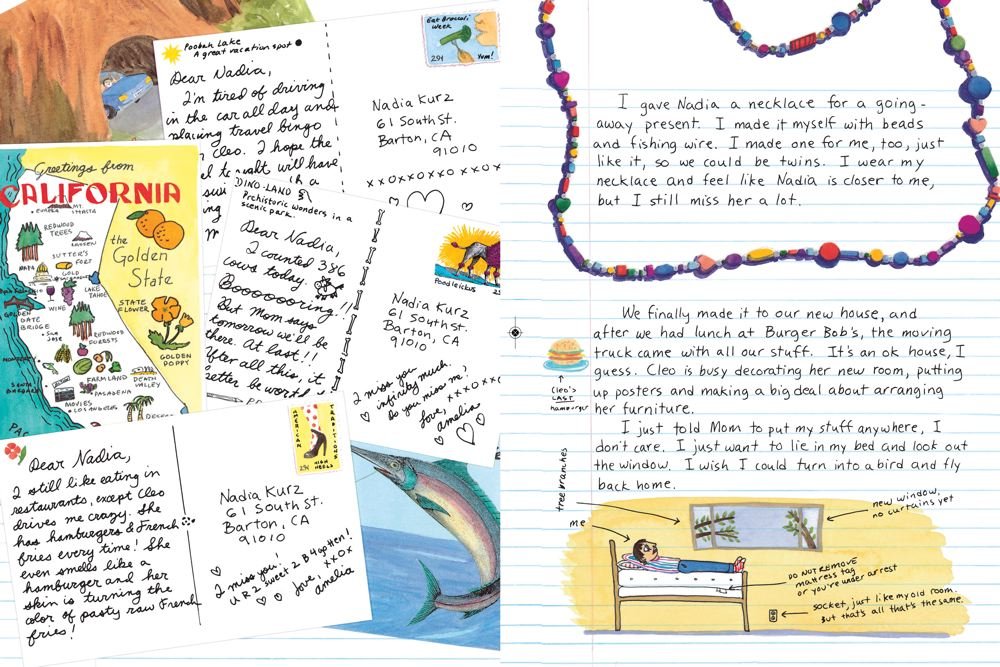 Poobah Lake
A great vacation spot
Dear Nadia,
I'm tired of driving
in the car all day and
playing travel bingo
Cleo. I hope the
will have
Eat Broccoli
Week
29¢
Yum!
Nadia Kurz
61 South St.
Barton, CA
91010
xxoxxoxoxxo
Greetings from
CALIFORNIA
the
Golden
State
EUREKA
MT. SHASTA
REDWOOD
TREES
LASSEN
SUTTER'S
FORT
NAPA
GOLD
LAKE
TAHOE
GOLDEN
GATE
BRIDGE
WINE
SAN
JOSE
REDWOOD
FORESTS
STATE
FLOWER
GOLDEN
POPPY
MONTEREY
FARMLAND
DEATH
VALLEY
SANTA
BARBARA
PASADENA
MOVIES
LOS ANGELES
DINO-LAND
Prehistoric wonders in a
scenic park.
Dear Nadia,
I counted 386
cows today.
Booooooring!!
But Mom says
tomorrow we'll be
there. At last!!
After all this, it
better be worth
Poodleickus
Nadia Kurz
61 South St.
Barton, CA
91010
I miss you
infinity much.
Do you miss me?
love, xxoxx
amelia
Dear Nadia,
I still like eating in
restaurants, except Cleo
drives me crazy. She
has hamburgers & French
fries every time! She
even smells like a
hamburger and her
skin is turning the
color of pasty raw French
fries!
AMERICAN
TRADITIONS
29¢
HIGH
HEELS
Nadia Kurz
61 South St.
Barton, CA
91010
I miss you!
U R 2 sweet 2 B 4gotten!
love, xxox
amelia
I gave Nadia a necklace for a going-
away present. I made it myself with beads
and fishing wire. I made one for me, too, just
like it, so we could be twins. I wear my
necklace and feel like Nadia is closer to me,
but I still miss her a lot.
We finally made it to our new house, and
after we had lunch at Burger Bob's, the moving
truck came with all our stuff. It's an ok house, I
guess. Cleo is busy decorating her new room, putting
up posters and making a big deal about arranging
her furniture.
Cleo's
LAST
hamburger
I just told Mom to put my stuff anywhere, I
don't care. I just want to lie in my bed and look out
the window. I wish I could turn into a bird and fly
back home.
tree branches
me
new window,
no curtains yet
DO NOT REMOVE
mattress tag
or you're under arrest
socket, just like my old room.
But that's all that's the same.